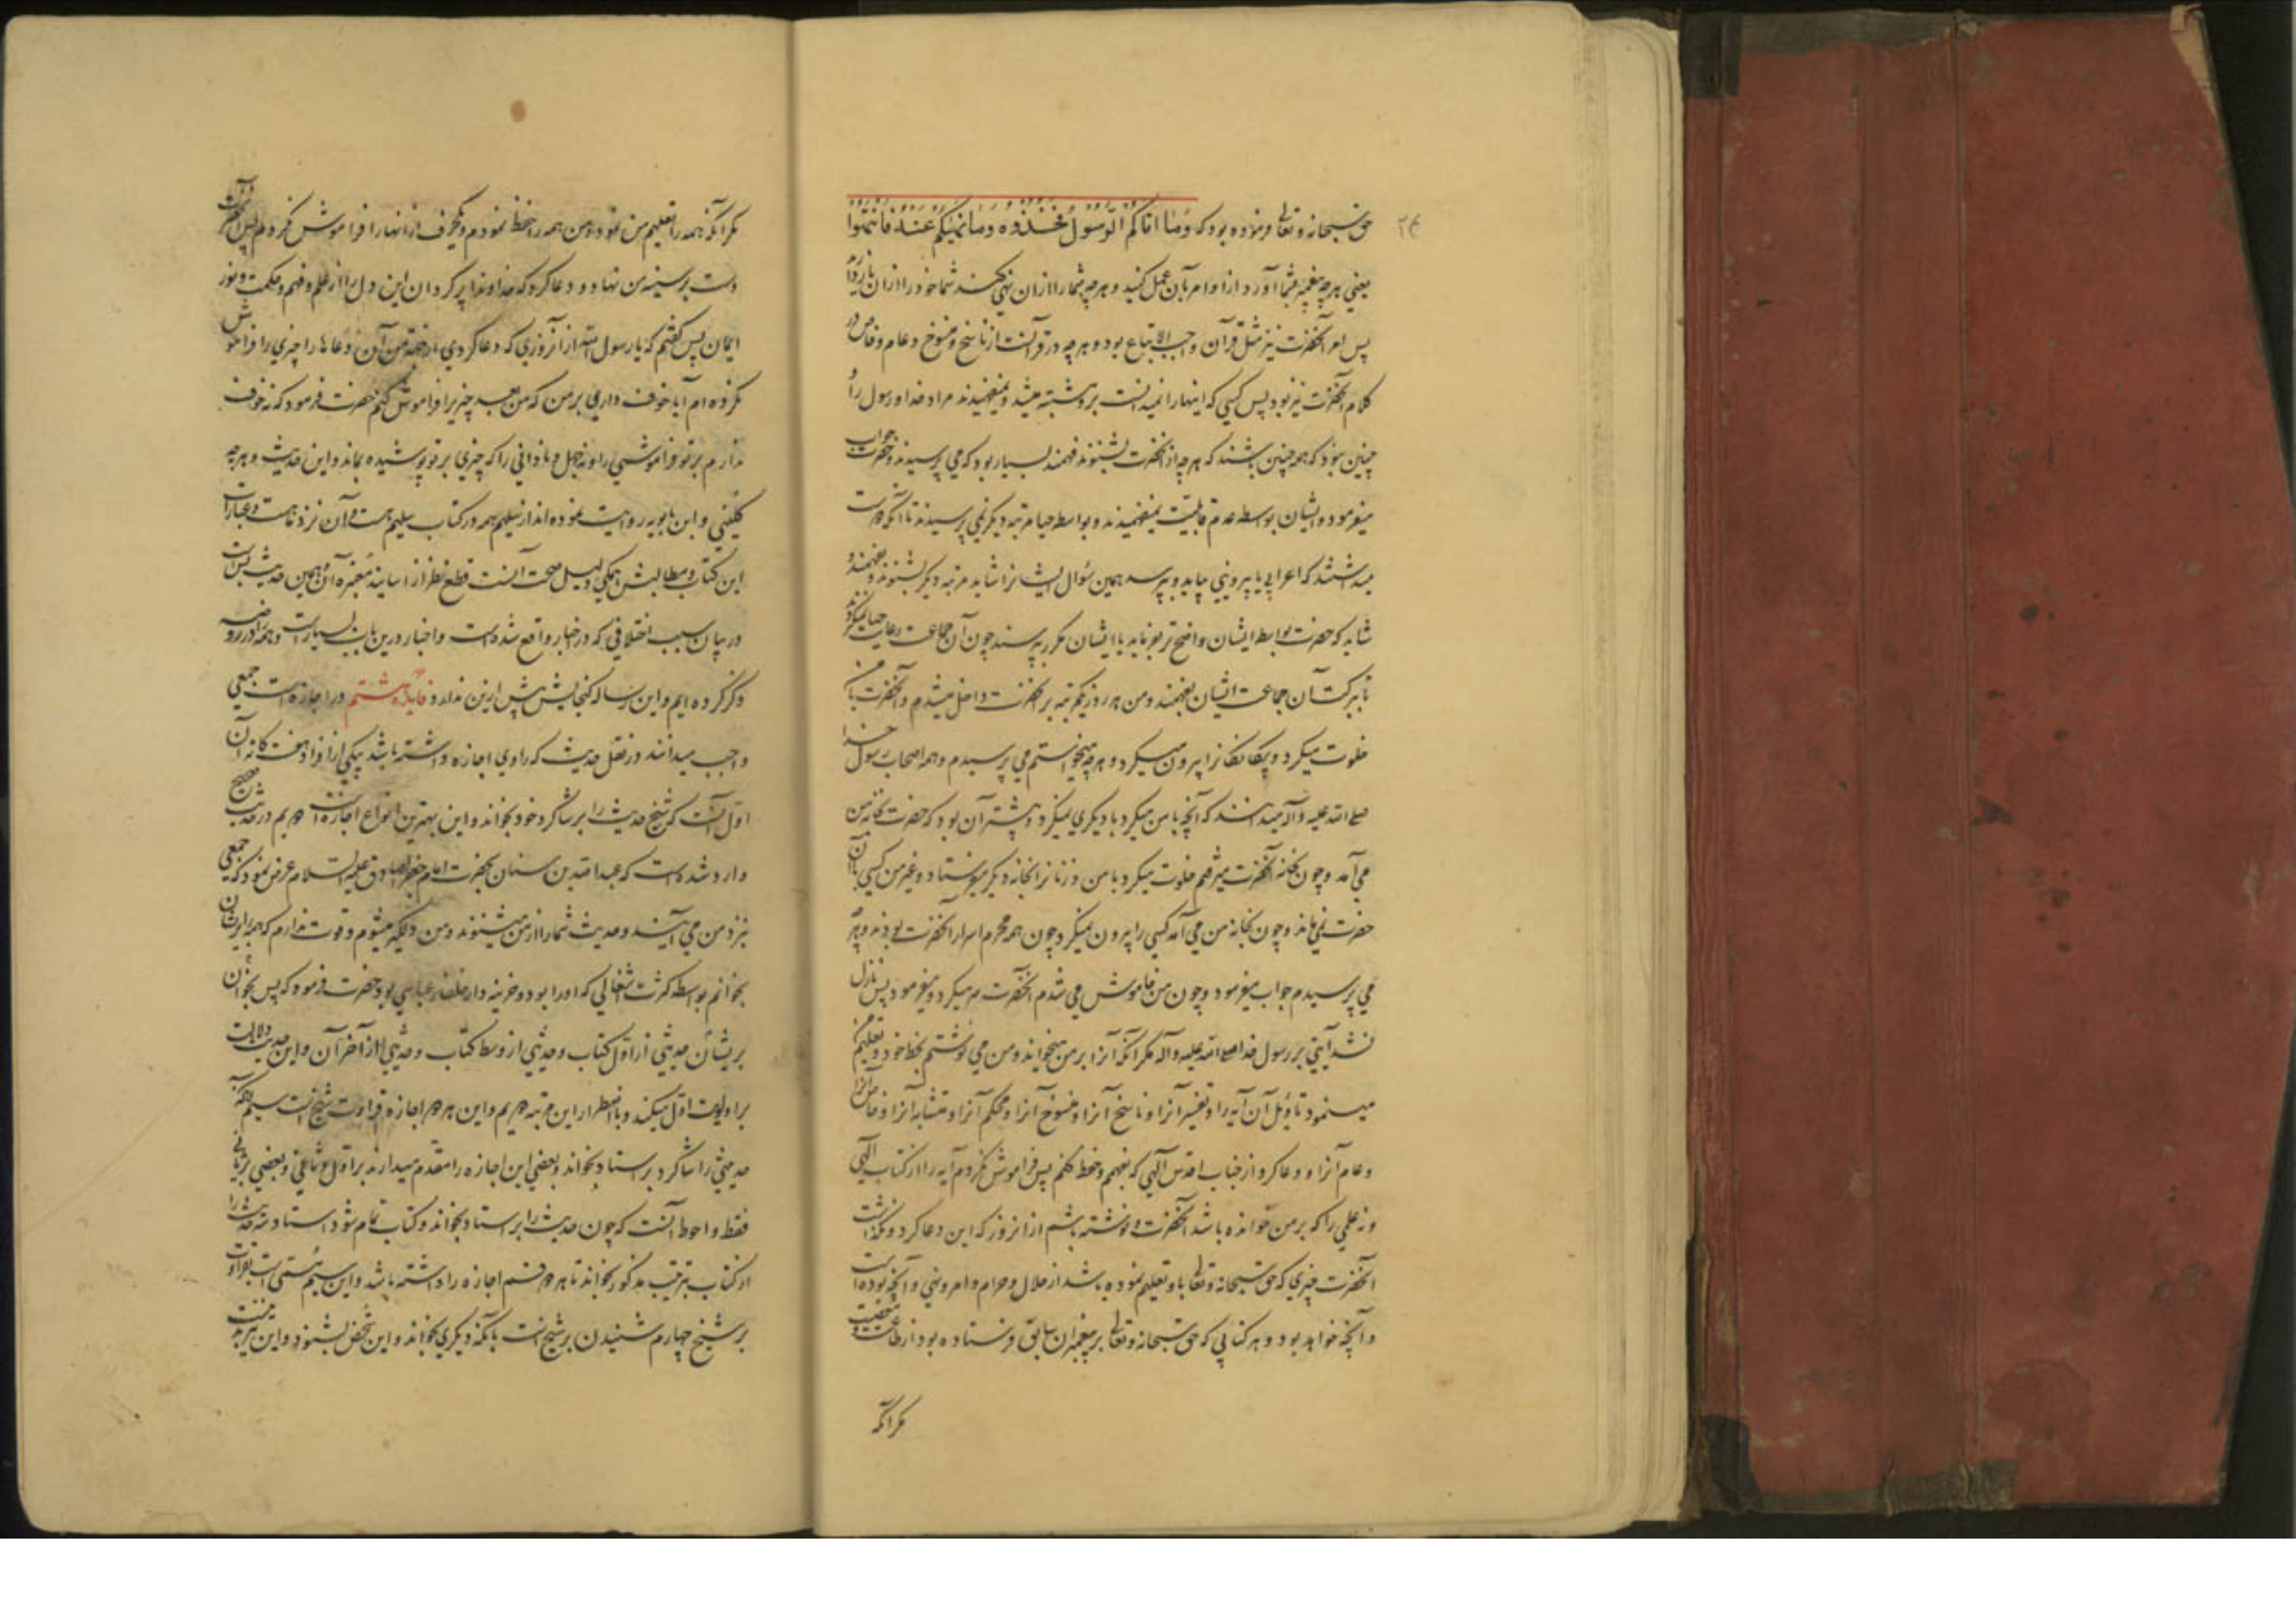 ۲۴
حق سبحانه و تعالی فرموده بود که وَمَا اتاکم الرَّسُولُ فَخُذُوهُ وَمَا نَهٰیکُم عَنْهُ فَانْتَهُوا
یعنی هرچه پیغمبر بشما آورد از اوامر بآن عمل کنید و هرچه شما را از آن نهی کند شما خود را از آن باز دارید
پس امر آنحضرت نیز مثل قرآن واجب الاتباع بود و هرچه در قرآنست از ناسخ و منسوخ و عام و خاص در
کلام آنحضرت نیز بود پس کسی که اینها را نمیدانست برو مشتبه میشد و نمیفهمیدند مراد خدا و رسول را و
چنین نبود که همه چنین باشند که هرچه از آنحضرت بشنوند فهمند بسیار بود که می پرسیدند و حضرت جواب
میفرمود و ایشان بواسطه عدم قابلیت نمیفهمیدند و بواسطه حیا مرتبه دیگر نمی پرسیدند تا آنکه دوست
میداشتند که اعرابی یا بیرونی بیاید و بپرسد همین سؤال ایشانرا شاید مرتبه دیگر بشنوند و بفهمند و
شاید که حضرت بواسطه ایشان واضح تر بفرماید یا ایشان مکرر بپرسند چون آن جماعت رعایت حیا نمیکردند
تا ببرکت آن جماعت ایشان بفهمند و من هر روز یکمرتبه بر آنحضرت داخل میشدم و آنحضرت با من
خلوت میکرد و بیکانکانرا بیرون میکرد و هرچه میخواستم می پرسیدم و همه اصحاب رسول خدا
صلی الله علیه و آله میدانستند که آنچه با من میکرد با دیگری نمیکرد و بیشتر آن بود که حضرت بخانه من
می آمد و چون بخانه آنحضرت میرفتم خلوت میکرد با من و زنانرا بخانه دیگر میفرستاد و غیر من کسی با آن
حضرت نمی ماند و چون بخانه من می آمد کسی را بیرون نمیکرد چون همه محرم اسرار آنحضرت بودند و هرچه
می پرسیدم جواب میفرمود و چون من خاموش می شدم آنحضرت سر میکرد و میفرمود پس نازل
نشد آیتی بر رسول خدا صلی الله علیه و آله مکر آنکه آنرا بر من میخواند و من می نوشتم بخط خود و تعلیم من
مینمود تاویل آن آیه را و تفسیر آنرا و ناسخ آنرا و منسوخ آنرا و محکم آنرا و متشابه آنرا و خاص آنرا
و عام آنرا و دعا کرد از جناب اقدس آلهی که بفهم و حفظ کنم پس فراموش نکردم آیه را از کتاب الهی
و نه علمی را که بر من خوانده باشد آنحضرت و نوشته باشم از آنروز که این دعا کرد و نگذاشت
آنحضرت چیزی که حق سبحانه و تعالی باو تعلیم نموده باشد از حلال و حرام و امر و نهی و آنچه بوده است
و آنچه خواهد بود و هر کتابی که حق سبحانه و تعالی بر پیغمبران سابق فرستاده بود از طاعت و معصیت
مکر آنکه
مکر آنکه همه را تعلیم من نمود و من همه را حفظ نمودم و یکحرف از آنها را فراموش نکردم پس آنحضرت
دست بر سینه من نهاد و دعا کرد که خداوندا پر گردان این دل را از علم و فهم و حکمت و نور
ایمان پس گفتم که یا رسول الله از آنروزی که دعا کردی از جهة من آن دعاها را چیزی را فراموش
نکرده ام آیا خوف داری بر من که من بعد چیزیرا فراموش کنم حضرت فرمود که نه خوف
ندارم بر تو فراموشی را و نه جهل و نادانی را که چیزی بر تو پوشیده بماند و این حدیث و هرچه
کلینی و ابن بابویه روایت نموده اند از سلیم همه در کتاب سلیم هست و آن نزد ما هست و عبارات
این کتاب و مطالبش همگی دلیل صحت آنست قطع نظر از اسانید معتبره آن و همین حدیث بس است
در بیان سبب اختلافی که در اخبار واقع شده است و اخبار درین باب بسیار است و همه را در روضه
ذکر کرده ایم و این رساله کنجایش بیش ازین ندارد فایدهٔ هشتم در اجازه است جمعی
واجب میدانند در نقل حدیث که راوی اجازه داشته باشد بیکی از افراد هفت گانه آن
اول آنست که شیخ حدیث را بر شاگرد خود بخواند و این بهترین انواع اجازتست دویم در حدیث صحیح
وارد شده است که عبدالله بن سنان بحضرت امام جعفر صادق علیه السلام عرض نمود که جمعی
نزد من می آیند و حدیث شما را از من میشنوند و من دلگیر میشوم و قوت ندارم که همه را بر ایشان
بخوانم بواسطه کثرت اشغالی که او را بود و خزینه دار خلفاء عباسی بود حضرت فرمود که پس بخوان
بریشان حدیثی از اول کتاب و حدیثی از وسط کتاب و حدیثی از آخر آن و این حدیث دلالت
بر اولویت اول میکند و با اضطرار این مرتبه دویم و این هر دو اجازه قراءت شیخ است سیم آنکه
حدیث را شاگرد بر استاد بخواند و بعضی این اجازه را مقدم میدارند بر اول و ثانی و بعضی بر ثانی
فقط و احوط آنست که چون حدیث را بر استاد بخواند و کتاب تمام شود استاد سه حدیث را
از کتاب بترتیب مذکور بخواند تا هر دو قسم اجازه را داشته باشد و این سیم مسمی است بقراءت
بر شیخ چهارم شنیدن بر شیخ است بآنکه دیگری بخواند و این شخص بشنود و این مرتبه